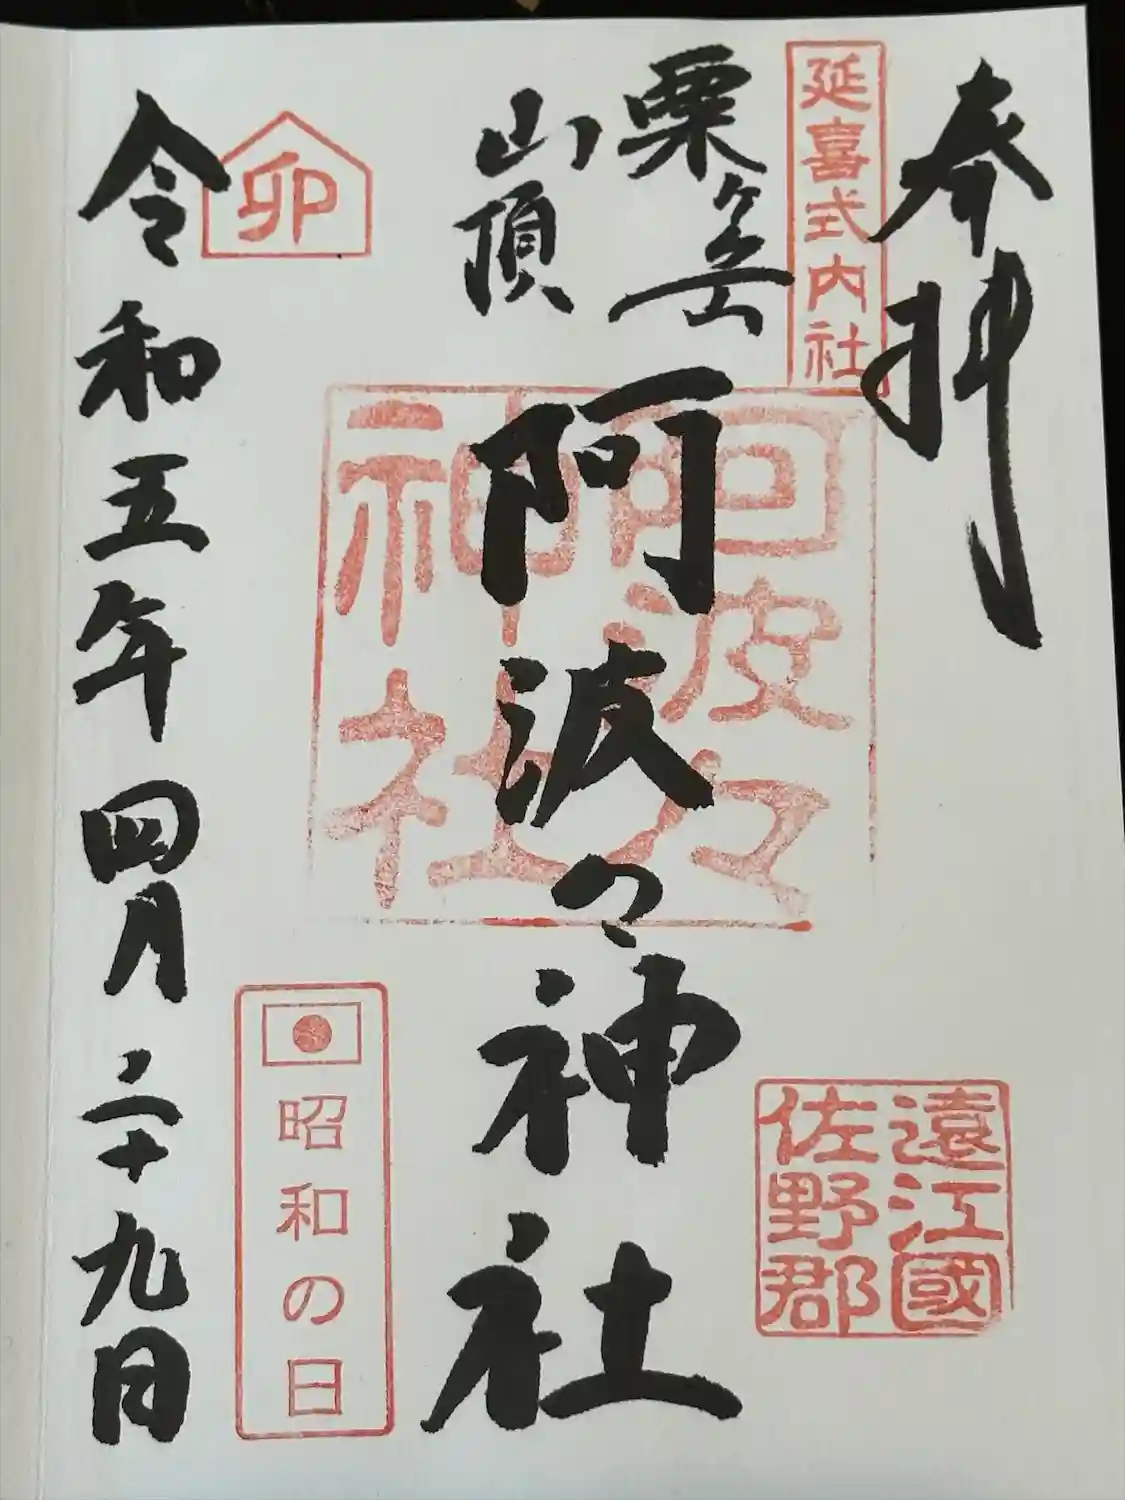 奉拝
延喜式内社
遠江國
佐野郡
粟ヶ岳
山頂
阿波々神社
阿波々
神社
卯
昭和の日
令和五年四月二十九日